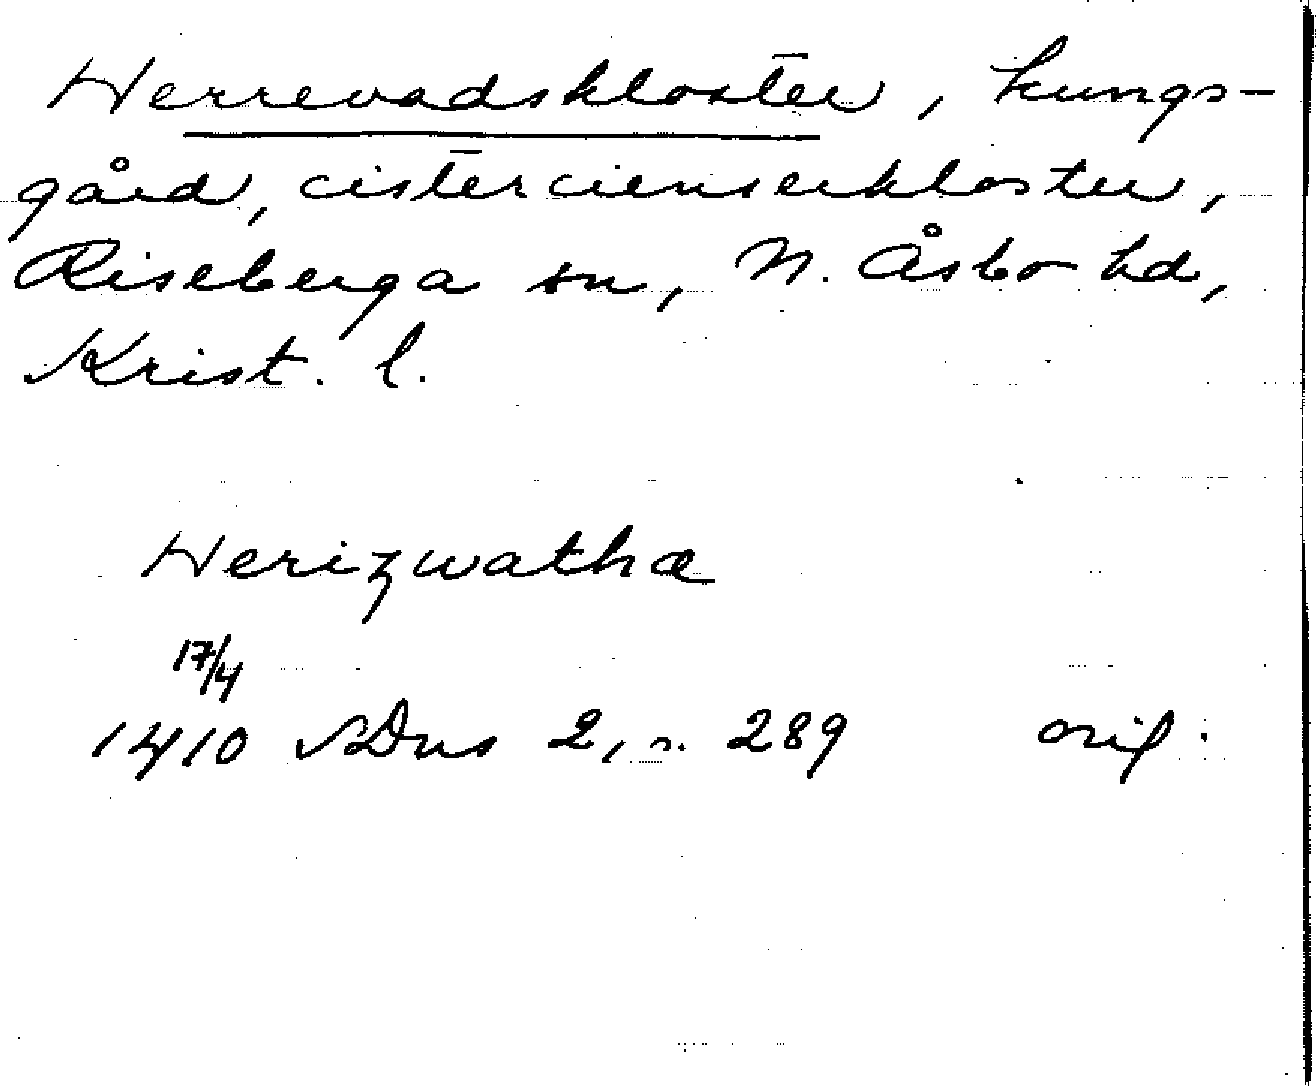 Herrevadskloster, kungs-
gård, cistercienserkloster,
Riseberga sn, N. Åsbo hd,
Krist. l.
Herizwathæ
17/4
1410 SDns 2, s. 289 orig.